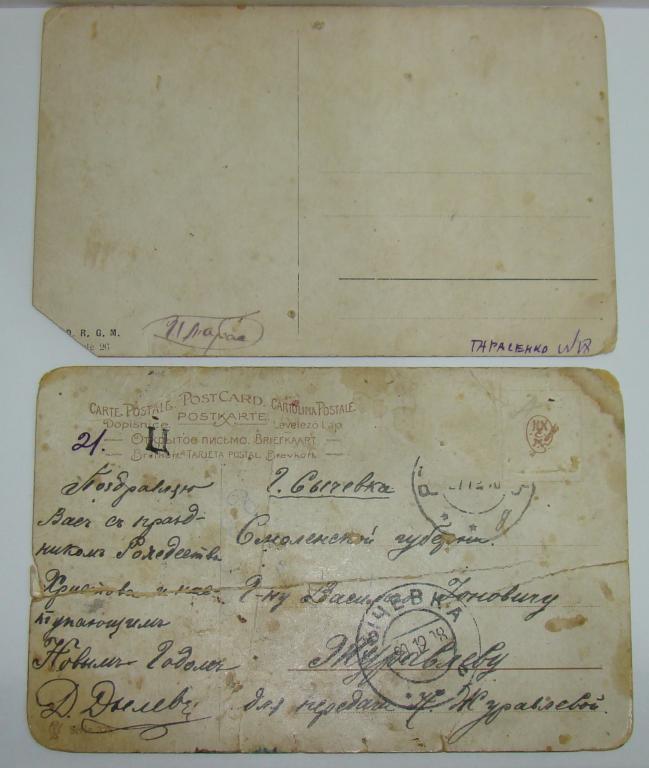 R. G. M.
26
ТАРАСЕНКО
CARTE POSTALE. POSTCARD. CARTOLINA POSTALE.
POSTKARTE
Dopisnice Levelező Lap
ОТКРЫТОЕ ПИСЬМО. BRIEFKAART
TARJETA POSTAL. Brevkort
21. Ц
Поздравляю
Васъ съ празд-
никомъ Рождества
Христова и нас-
тупающимъ
Новымъ Годомъ
Д. Дылевъ
Г. Сычевка
Смоленской губерніи.
Г-ну Василію Іоновичу
Журавлеву
для передачи Н. Журавлевой.
СЫЧЕВКА
12